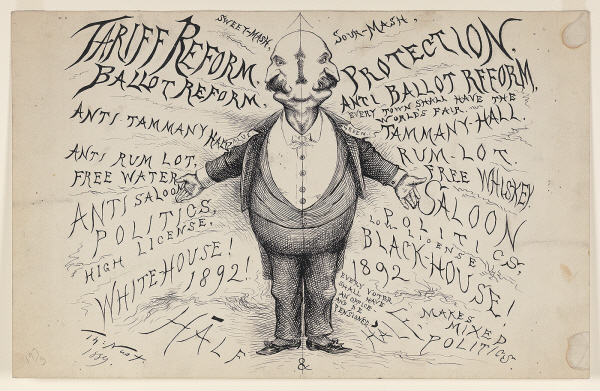 SWEET-MASH,
TARIFF REFORM.
BALLOT REFORM.
ANTI-TAMMANY HALL
ANTI RUM LOT.
FREE WATER
ANTI SALOON
POLITICS,
HIGH LICENSE,
WHITEHOUSE!
1892!
HALF
Th: Nast
1889.
&
SOUR-MASH,
PROTECTION.
ANTI BALLOT REFORM,
EVERY TOWN SHALL HAVE THE
WORLD'S FAIR.
TAMMANY-HALL.
RUM-LOT.
FREE WHISKEY.
SALOON
POLITICS,
LOW LICENSE
BLACK-HOUSE!
1892
EVERY VOTER
SHALL HAVE
AN OFFICE.
AND BE
PENSIONED
HALF
MAKES
MIXED
POLITICS.